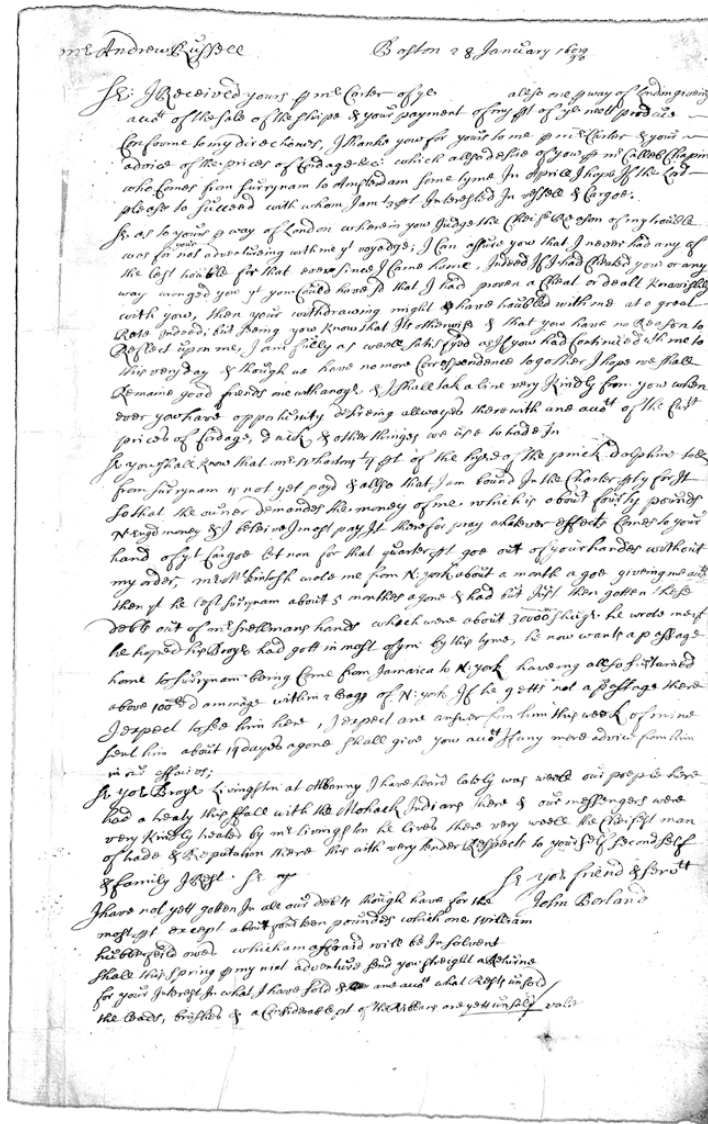 Mr Andrew Russell Boston 28 January 1689/90
Sr: I Received yours p mr Carter of ye allso one p way of London giveing
accott of the sale of the shipe & your payment of my pt of ye nett produce
Conforme to my directiones, I thanke yow for yours to me p mr Carter & your
advice of the prices of Cordage &c: which allso desire of yow p mr Calleb Chapin
who Comes from surrynam to Amsterdam some tyme In Aprill I hope If the Lord
please to succeed with whom I am pt Interested In vessell & Cargoe.
Sr as to yours p way of London wherein yow Judge the Cheife Reason of my trouble
was for your not adventureing with me yt voyadge; I Can assure yow that I never had any of
the lest trouble for that ever since I Came home. Indeed If I had Cheated yow or any
way wronged yow yt yow Could have sd that I had proven a Cheat or dealt knavishlie
with yow, then your withdrawing might have troubled with me at a great
Rate Indeed; but being yow know that Its otherwise & that yow have no Reason to
Reflect upon me, I am fully as weell satisfyed as If yow had Continued with me to
this very day & though we have no more Correspondence togother I hope we shall
Remaine good friends one with anoyr & I shall tak a line very kindly from yow when
ever yow have opportunity desireing allwayes therewith ane accott of the Curtt
prices of Cordage, duck & other thinges we use to trade In
Sr yow shall know that mr Whartons 1/4 pt of the hyre of the pinck dolphine
from surrynam is not yet payd & allso that I am bound In the Charter pty for It
so that the owner demandes the money of me which is about fourty pounds
N: Engd money & I beleive I most pay It therefor pray whatever effects Comes to your
hand of yt Cargoe let non for that quarter pt goe out of your handes without
my order, mr McKintosh wrote me from N: york about a month a goe giveing me accott
then yt he left surrynam about 5 monthes agone & had but Just then gotten these
debts out of mr Snellmans hands which were about 30000 he wrote me yt
he hoped his Broyr had gott in most of ym by this tyme, he now wants a passage
home to surrynam being Come from Jamaica to N: york having allso sustained
above 100 dammage within 2 leags of N: york If he getts not a passage there
I expect to see him here, I expect ane answer from him this week of mine
sent him about 14 dayes agone shall give yow accott If any more advice from him
in our effaires;
Sr yor Broyr Livingston at Albanny I have heard lately was weell our people here
had a treaty this ffall with the Mohack Indians there & our messengers were
very kindly treated by mr Livingston he lives there very weell the Cheifest man
of trade & Reputation there this with very tender Respects to yourself second self
& family I Rest. Sr
Sr yor friend & servtt
John Borland
I have not yett gotten In all our debts though have for the
most pt except about fourteen poundes which one William
hubberfeild owes which am affraid will be Insolvent
shall this spring p my nixt adventure send yow streight a Returne
for your Interest In what I have sold & ane accott what Rests unsold
the beads, brushes & a Considerable pt of the Ribbans are yett unsold vale